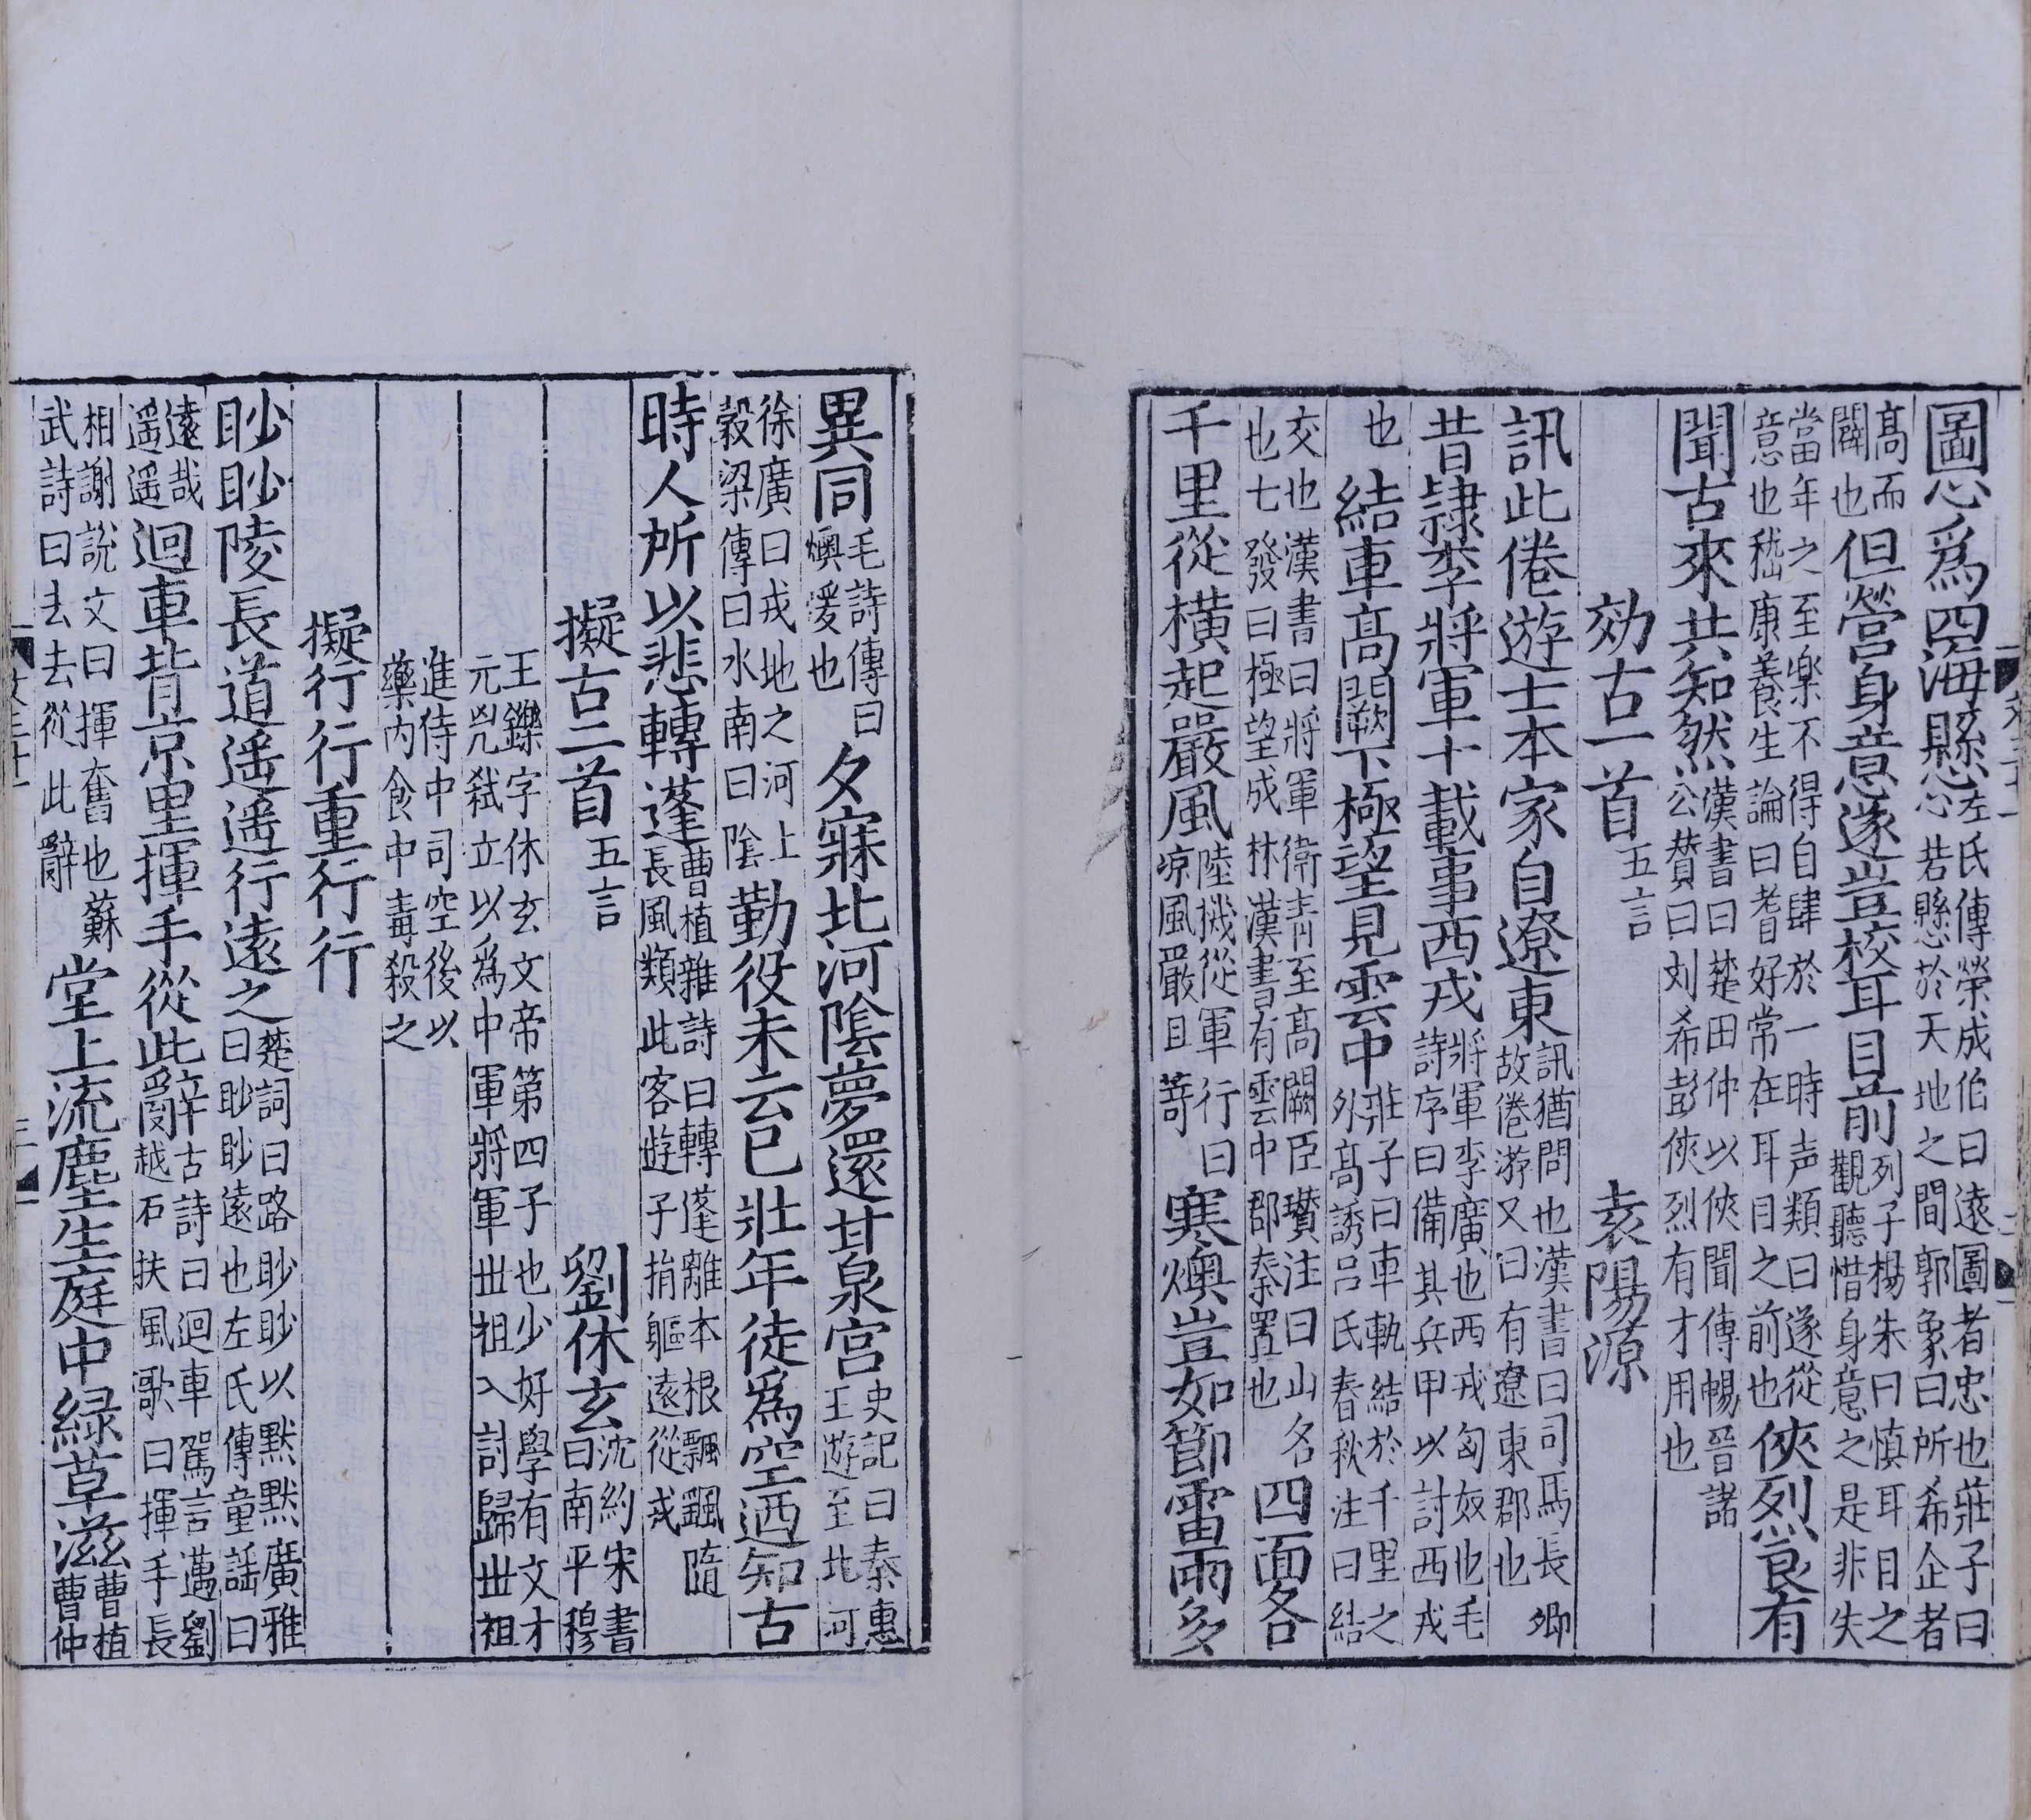 圖心爲四海懸左氏傳榮成伯曰遠圖者忠也莊子曰心若懸於天地之間郭象曰所希企者
高而闊也但營身意遂豈校耳目前列子楊朱曰慎耳目之觀聽惜身意之是非失
當年之至樂不得自肆於一時声類曰遂從意也嵇康養生論曰耆好常在耳目之前也俠烈良有
聞古來共知然漢書曰楚田仲以俠聞傳暢晉諸公賛曰刘希彭俠烈有才用也
効古一首五言 袁陽源
訊此倦遊士本家自遼東訊猶問也漢書曰司馬長卿故倦游又曰有遼東郡也
昔隷李將軍十載事西戎將軍李廣也西戎匈奴也毛詩序曰備其兵甲以討西戎
也結車高闕下極望見雲中莊子曰車軌結於千里之外高誘吕氏春秋注曰結
交也漢書曰將軍衛青至高闕臣瓚注曰山名也七發曰極望成林漢書有雲中郡秦置也四面各
千里從横起嚴風陸機從軍行曰凉風嚴且苛寒燠豈如節霜雨多
異同毛詩傳曰燠煖也夕寐北河陰夢還甘泉宫史記曰秦惠王遊至北河
徐廣曰戎地之河上穀梁傳曰水南曰陰勤役未云已壯年徒爲空迺知古
時人所以悲轉蓬曹植雜詩曰轉蓬離本根飄颻隨長風類此客遊子捐軀遠從戎
擬古二首五言 劉休玄沈約宋書曰南平穆
王鑠字休玄文帝第四子也少好學有文才元兇弒立以爲中軍將軍丗祖入討歸丗祖
進侍中司空後以藥内食中毒殺之
擬行行重行行
眇眇陵長道遥遥行遠之楚詞曰路眇眇以默默廣雅曰眇眇遠也左氏傳童謡曰
遠哉遥遥迴車背京里揮手從此辭古詩曰迴車駕言邁劉越石扶風歌曰揮手長
相謝説文曰揮奮也蘇武詩曰去去從此辭堂上流塵生庭中緑草滋曹植曹仲